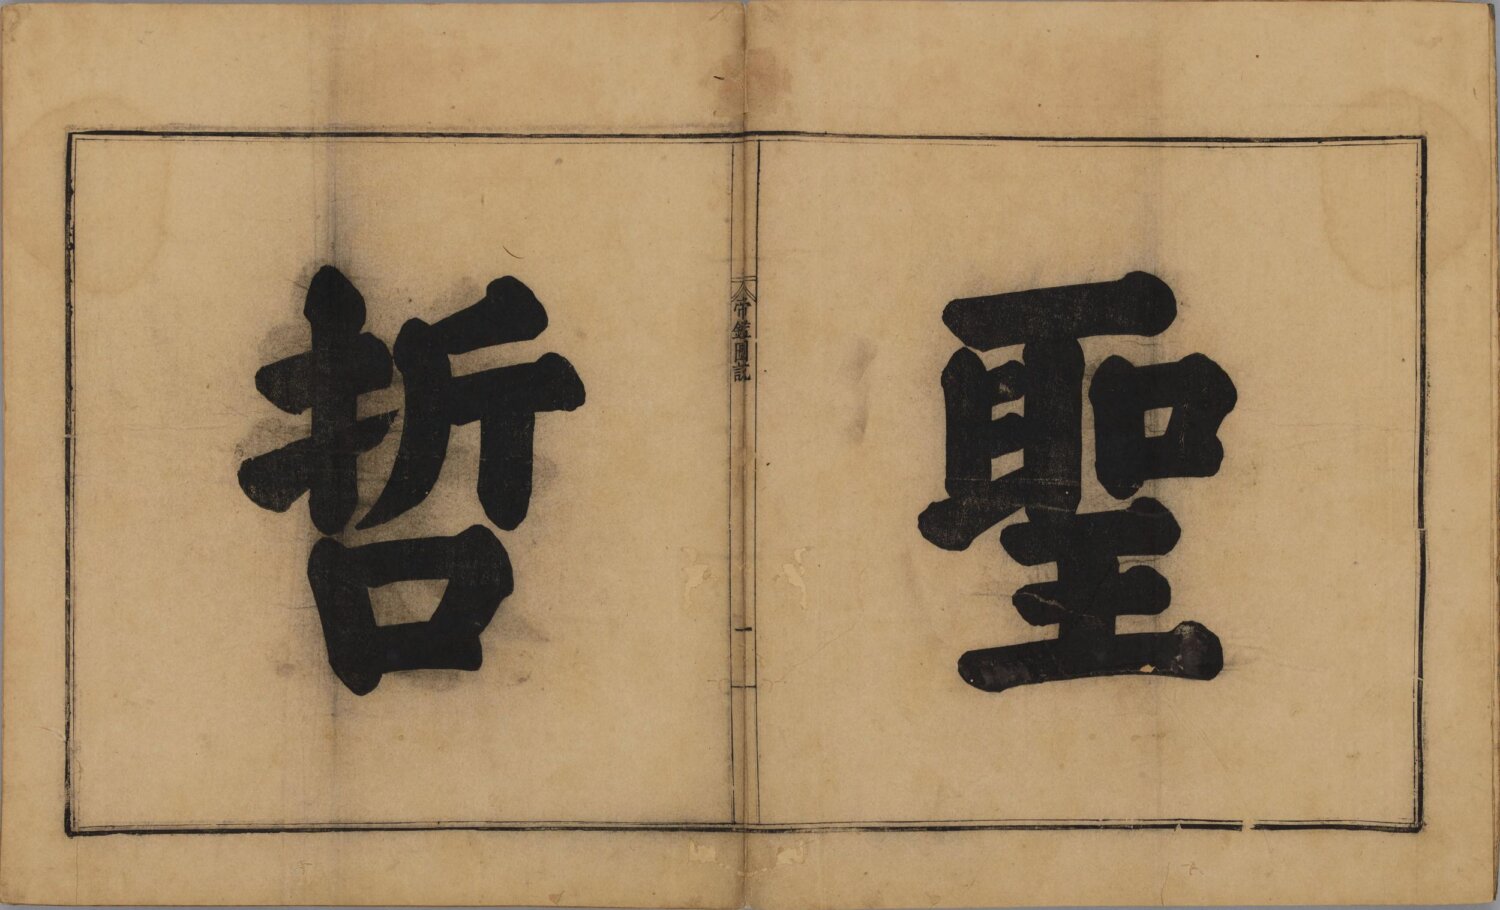 聖
帝鑑圖說
一
哲